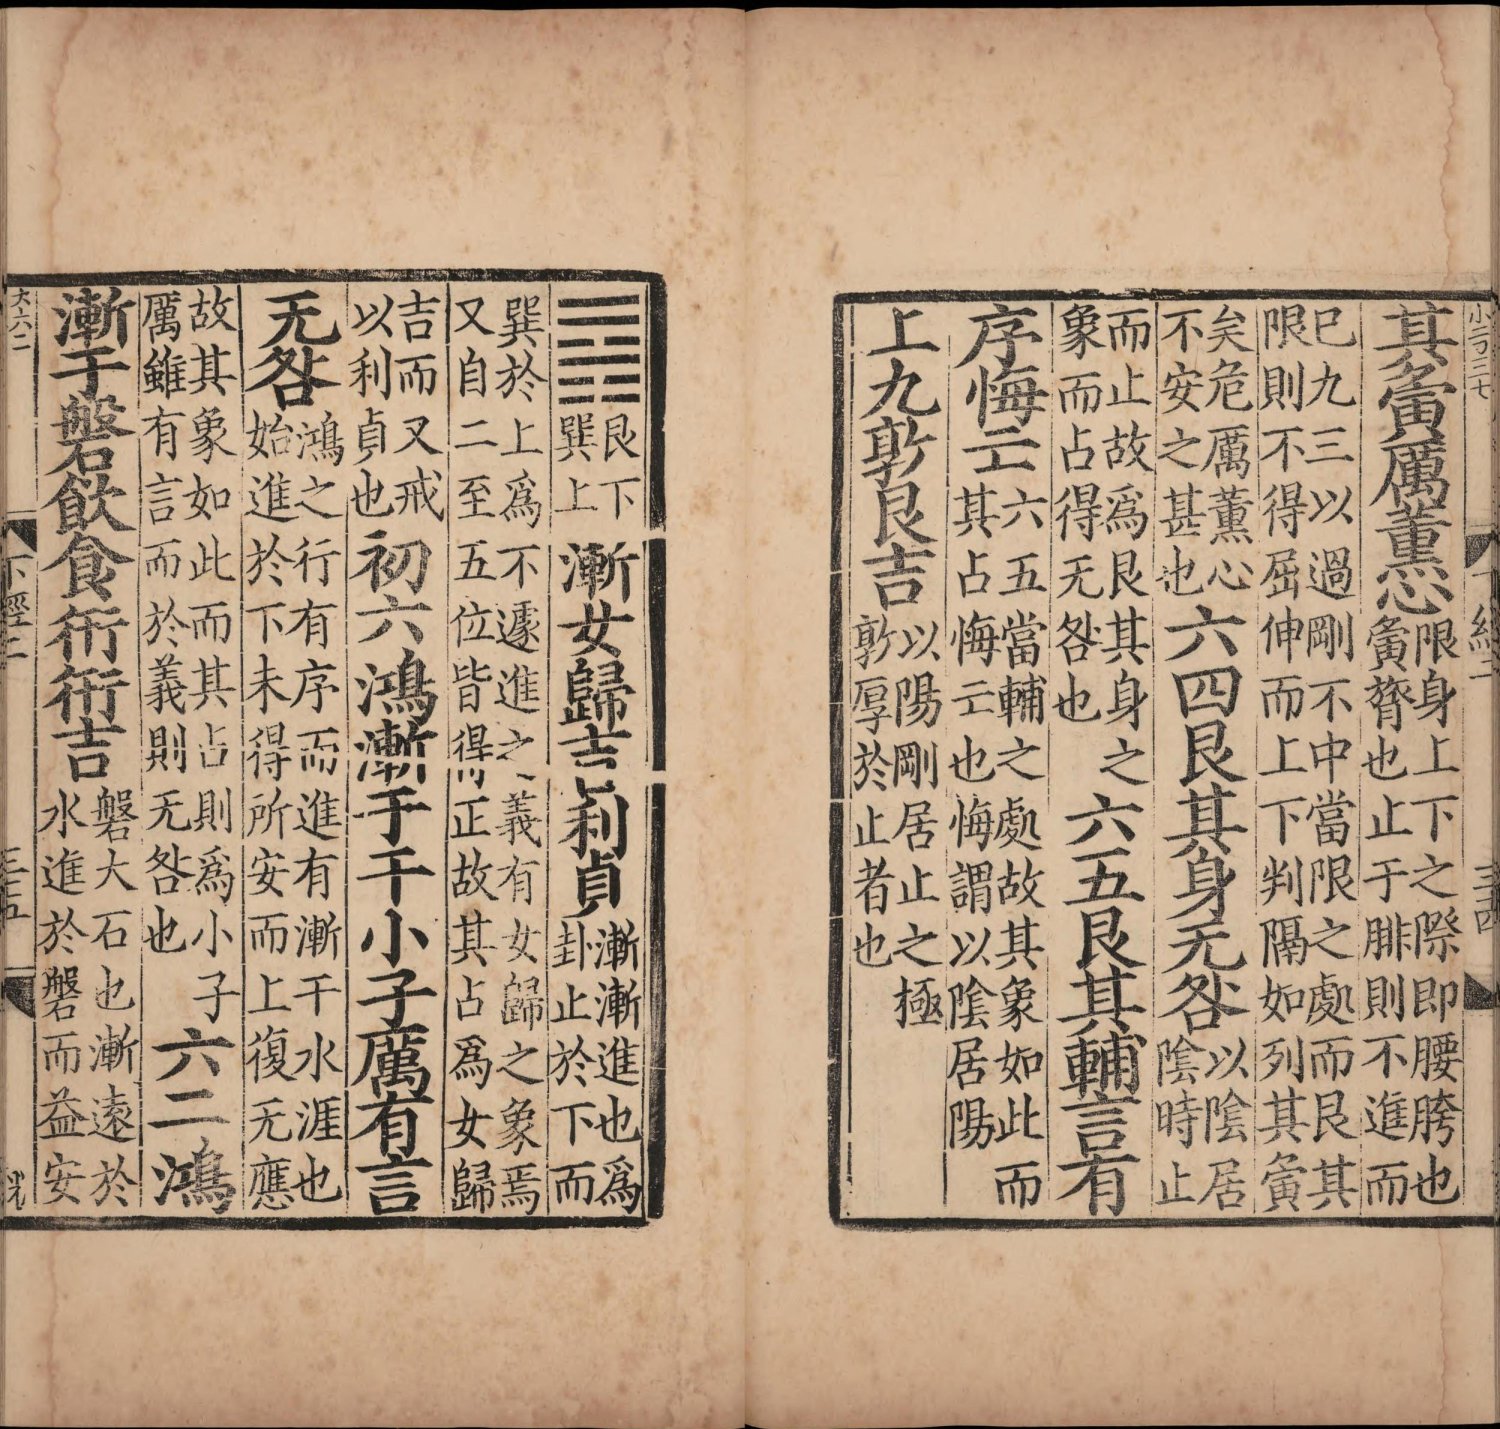 下經二
三四
其夤厲薰心
限身上下之際即腰胯也
夤膂也止于腓則不進而
已九三以過剛不中當限之處而艮其
限則不得屈伸而上下判隔如列其夤
矣危厲薰心
不安之甚也
六四艮其身无咎
以陰居
陰時止
而止故爲艮其身之
象而占得无咎也
六五艮其輔言有
序悔亡
六五當輔之處故其象如此而
其占悔亡也悔謂以陰居陽
上九敦艮吉
以陽剛居止之極
敦厚於止者也
艮下
巽上
漸女歸吉利貞
漸漸進也爲
卦止於下而
巽於上爲不遽進之義有女歸之象焉
又自二至五位皆得正故其占爲女歸
吉而又戒
以利貞也
初六鴻漸于干小子厲有言
无咎
鴻之行有序而進有漸干水涯也
始進於下未得所安而上復无應
故其象如此而其占則爲小子
厲雖有言而於義則无咎也
六二鴻
漸于磐飲食衎衎吉
磐大石也漸遠於
水進於磐而益安
大六二
下經二
三五